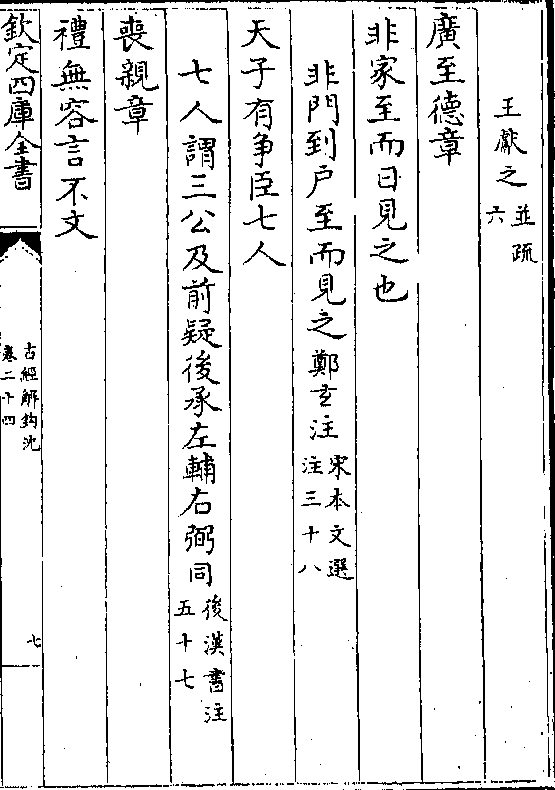 王獻之並疏六
廣至德章
非家至而日見之也
非門到戸至而見之鄭𤣥注宋本文選注三十八
天子有争臣七人
七人謂三公及前疑後承左輔右弼同後漢書注五十七
喪親章
禮無容言不文
欽定四庫全書
古經解鈎沈
卷二十四
七